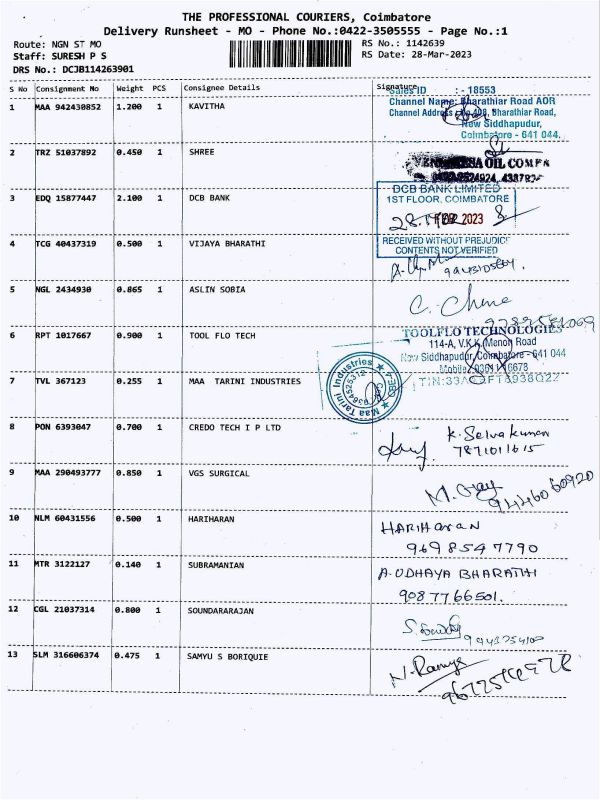 THE PROFESSIONAL COURIERS, Coimbatore
Delivery Runsheet - MO - Phone No.:0422-3505555 - Page No.:1
Route: NGN ST MO
RS No.: 1142639
Staff: SURESH P S
RS Date: 28-Mar-2023
DRS No.: DCJB114263901
S No Consignment No Weight PCS Consignee Details Signature
Sales ID : - 18553
1 MAA 942430852 1.200 1 KAVITHA
Channel Name: Bharathiar Road AOR
Channel Address: Bharathiar Road,
New Siddhapudur,
Coimbatore - 641 044.
2 TRZ 51037892 0.450 1 SHREE
OIL COMPA
3 EDQ 15877447 2.100 1 DCB BANK
DCB BANK LIMITED
1ST FLOOR, COIMBATORE
2023
RECEIVED WITHOUT PREJUDICE
CONTENTS NOT VERIFIED
4 TCG 40437319 0.500 1 VIJAYA BHARATHI
5 NGL 2434930 0.865 1 ASLIN SOBIA
6 RPT 1017667 0.900 1 TOOL FLO TECH
TOOLFLO TECHNOLOGIES
114-A, V.K.K.Menon Road
New Siddhapudur, Coimbatore - 641 044
7 TVL 367123 0.255 1 MAA TARINI INDUSTRIES
Maa Tarini Industries
8 PON 6393047 0.700 1 CREDO TECH I P LTD
K. Selvakumar
7871011615
9 MAA 290493777 0.850 1 VGS SURGICAL
9446060920
10 NLM 60431556 0.500 1 HARIHARAN
HARIHARAN
9698547790
11 MTR 3122127 0.140 1 SUBRAMANIAN
A. UDHAYA BHARATHI
9087766501.
12 CGL 21037314 0.800 1 SOUNDARARAJAN
13 SLM 316606374 0.475 1 SAMYU S BORIQUIE
N. Ramya